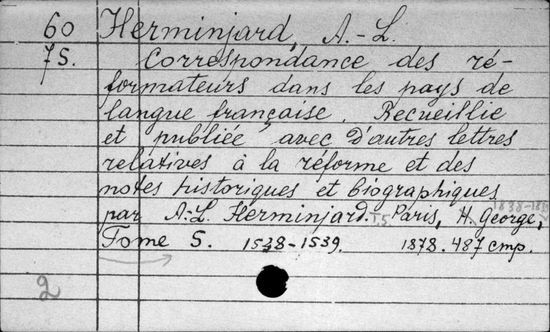 60 Herminjard, A.-L.
75. Correspondance des ré-
formateurs dans les pays de
langue française. Recueillie
et publiée avec d'autres lettres
relatives à la réforme et des
notes historiques et biographiques
par A.-L. Herminjard. T.5. Paris, H. George,
Tome 5. 1538-1539. 1878. 487 стр.
2